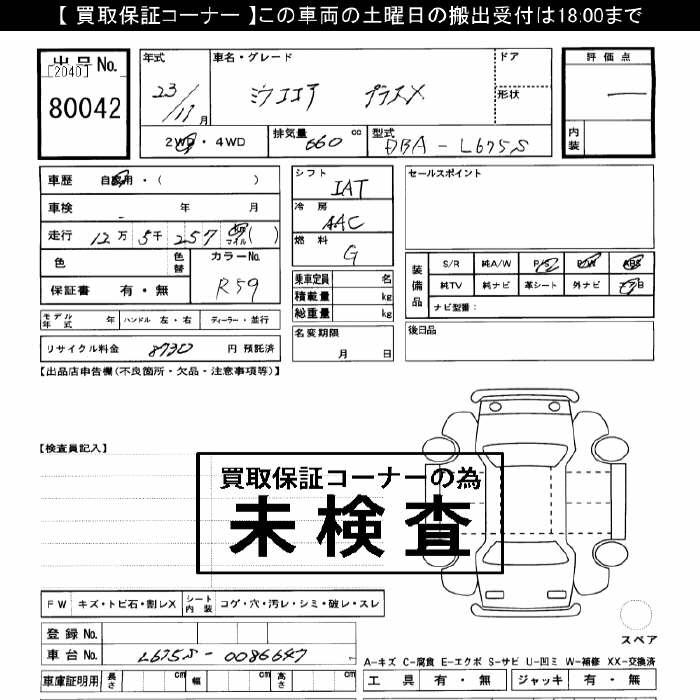 【 買取保証コーナー 】この車両の土曜日の搬出受付は18:00まで
出品No.
[2040]
80042
年式 車名・グレード ドア
23/11月 ミラココア プラスX 形状
2WD・4WD 排気量 660 cc 型式 DBA-L675S
評価点
内装
車歴 自家用・( )
車検 年 月
走行 12万5千257 km マイル ( )
色 色替 カラーNo.
保証書 有・無 R59
モデル年式 ハンドル 左・右 ディーラー・並行
リサイクル料金 8730 円 預託済
シフト IAT
冷房 AAC
燃料 G
乗車定員 名
積載量 kg
総重量 kg
名変期限
月 日
セールスポイント
装備品
S/R 純A/W P/S P/W ABS
純TV 純ナビ 革シート 外ナビ エアB
ナビ型番:
後日品
【出品店申告欄(不良箇所・欠品・注意事項等)】
【検査員記入】
買取保証コーナーの為
未検査
FW キズ・トビ石・割レX シート内装 コゲ・穴・汚レ・シミ・破レ・スレ
スペア
登録No.
車台No. L675S-0086647
車庫証明用 長さ cm 幅 cm 高さ cm
A-キズ C-腐食 E-エクボ S-サビ U-凹ミ W-補修 XX-交換済
工具 有・無 ジャッキ 有・無